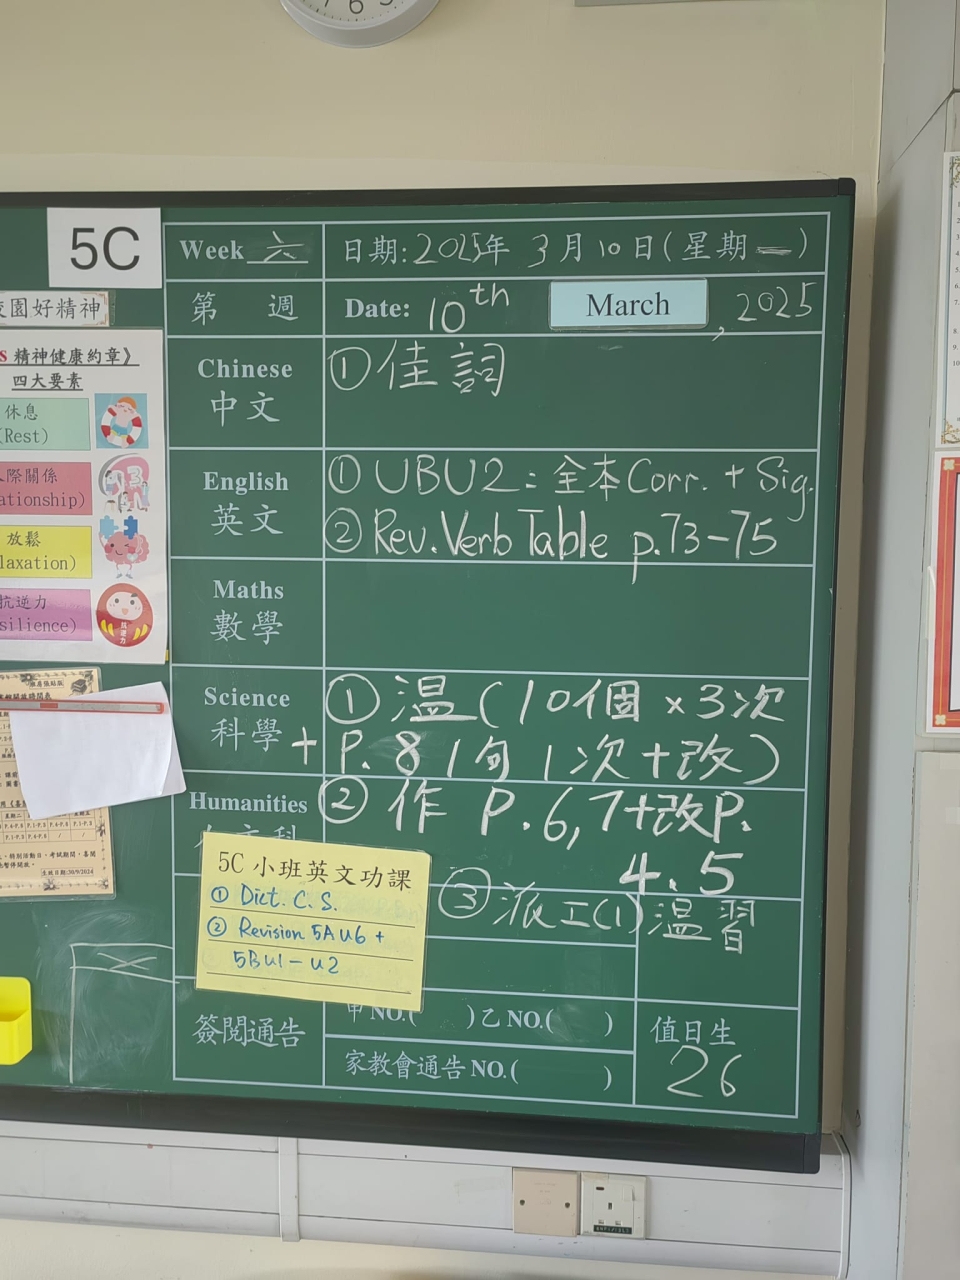 5C
Week 六
日期: 2025年 3月10日(星期一)
第 週
Date: 10th March, 2025
Chinese
中文
①佳詞
English
英文
① UBU2: 全本Corr. + Sig.
② Rev. Verb Table p.73-75
Maths
數學
Science
科學
① 溫(10個 x3次
+ P.8 1句 1次+改)
Humanities
② 作 P.6,7+改P.
4.5
③ 派工(1)溫習
5C 小班英文功課
① Dict. C. S.
② Revision 5A U6 +
5B U1 - U2
簽閱通告
甲 NO.( )乙 NO.( )
家教會通告 NO.( )
值日生
26
園好精神
精神健康約章》
四大要素
休息
(Rest)
人際關係
ationship)
放鬆
laxation)
抗逆力
silience)
抗逆力
生效日期:30/9/2024